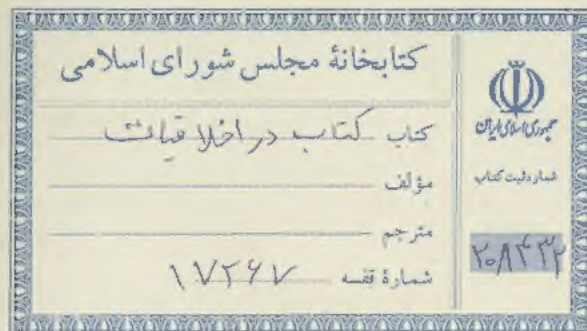 کتابخانهٔ مجلس شورای اسلامی
کتاب کتاب در اخلاقیات
مؤلف
مترجم
شمارهٔ قفسه ۱۷۲۶۷
جمهوری اسلامی ایران
شماره ثبت کتاب
۲۰۸۴۳۲